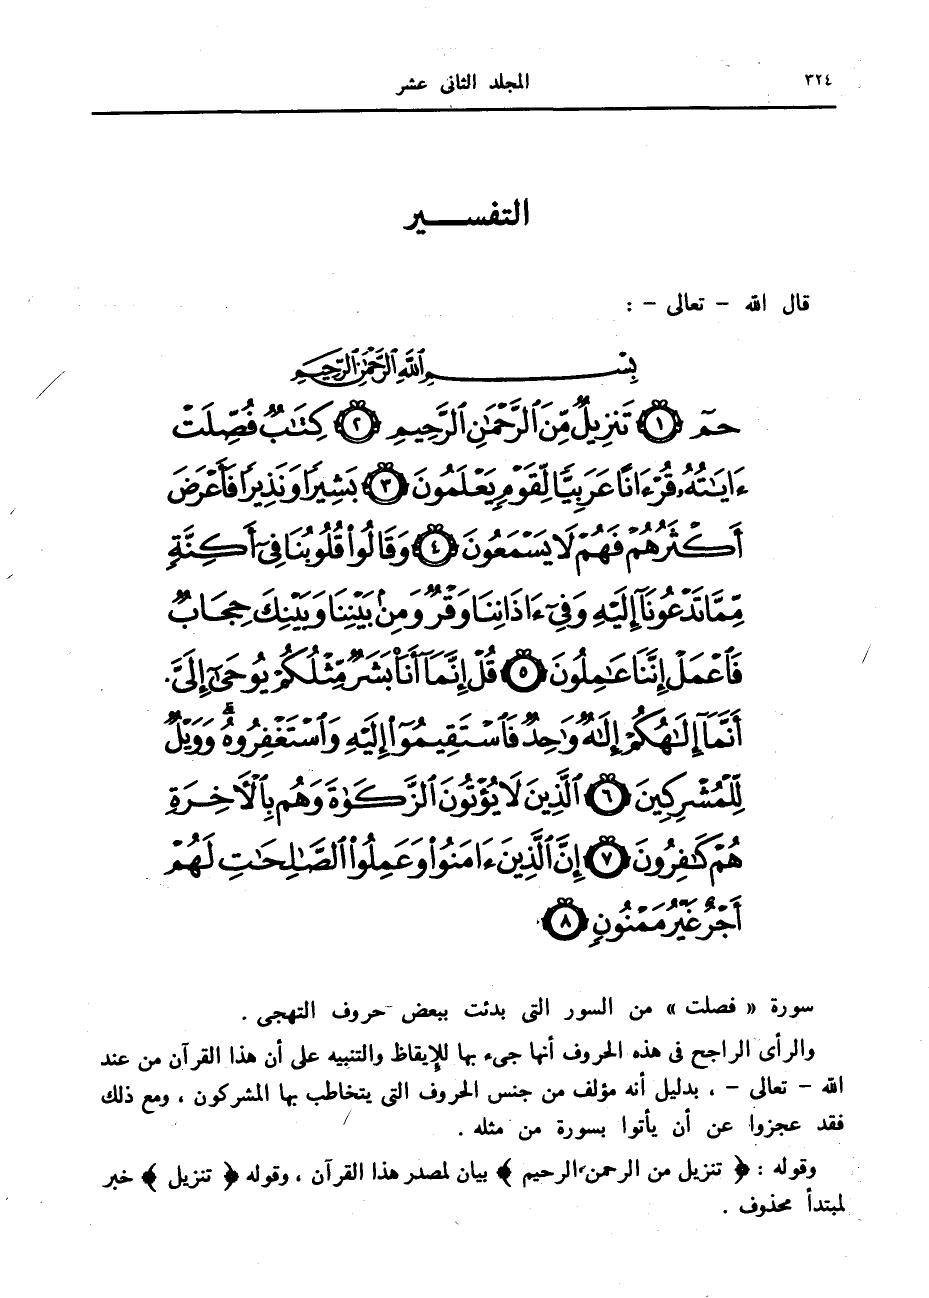 ٣٢٤
المجلد الثانى عشر
التفســـــير
قال الله – تعالى – :
بِسْـــــــمِ ٱللَّهِ ٱلرَّحْمَٰنِ ٱلرَّحِيمِ
حمٓ ١ تَنزِيلٌ مِّنَ ٱلرَّحْمَٰنِ ٱلرَّحِيمِ ٢ كِتَٰبٌ فُصِّلَتْ
ءَايَٰتُهُۥ قُرْءَانًا عَرَبِيًّا لِّقَوْمٍ يَعْلَمُونَ ٣ بَشِيرًا وَنَذِيرًا فَأَعْرَضَ
أَكْثَرُهُمْ فَهُمْ لَا يَسْمَعُونَ ٤ وَقَالُوا۟ قُلُوبُنَا فِىٓ أَكِنَّةٍ
مِّمَّا تَدْعُونَآ إِلَيْهِ وَفِىٓ ءَاذَانِنَا وَقْرٌ وَمِنۢ بَيْنِنَا وَبَيْنِكَ حِجَابٌ
فَٱعْمَلْ إِنَّنَا عَٰمِلُونَ ٥ قُلْ إِنَّمَآ أَنَا۠ بَشَرٌ مِّثْلُكُمْ يُوحَىٰٓ إِلَىَّ
أَنَّمَآ إِلَٰهُكُمْ إِلَٰهٌ وَٰحِدٌ فَٱسْتَقِيمُوٓا۟ إِلَيْهِ وَٱسْتَغْفِرُوهُ ۗ وَوَيْلٌ
لِّلْمُشْرِكِينَ ٦ ٱلَّذِينَ لَا يُؤْتُونَ ٱلزَّكَوٰةَ وَهُم بِٱلْـَٔاخِرَةِ
هُمْ كَٰفِرُونَ ٧ إِنَّ ٱلَّذِينَ ءَامَنُوا۟ وَعَمِلُوا۟ ٱلصَّٰلِحَٰتِ لَهُمْ
أَجْرٌ غَيْرُ مَمْنُونٍ ٨
سورة « فصلت » من السور التى بدئت ببعض حروف التهجى .
والرأى الراجح فى هذه الحروف أنها جىء بها للإيقاظ والتنبيه على أن هذا القرآن من عند
الله – تعالى – ، بدليل أنه مؤلف من جنس الحروف التى يتخاطب بها المشركون ، ومع ذلك
فقد عجزوا عن أن يأتوا بسورة من مثله .
وقوله : ﴿ تنزيل من الرحمن الرحيم ﴾ بيان لمصدر هذا القرآن ، وقوله ﴿ تنزيل ﴾ خبر
لمبتدأ محذوف .